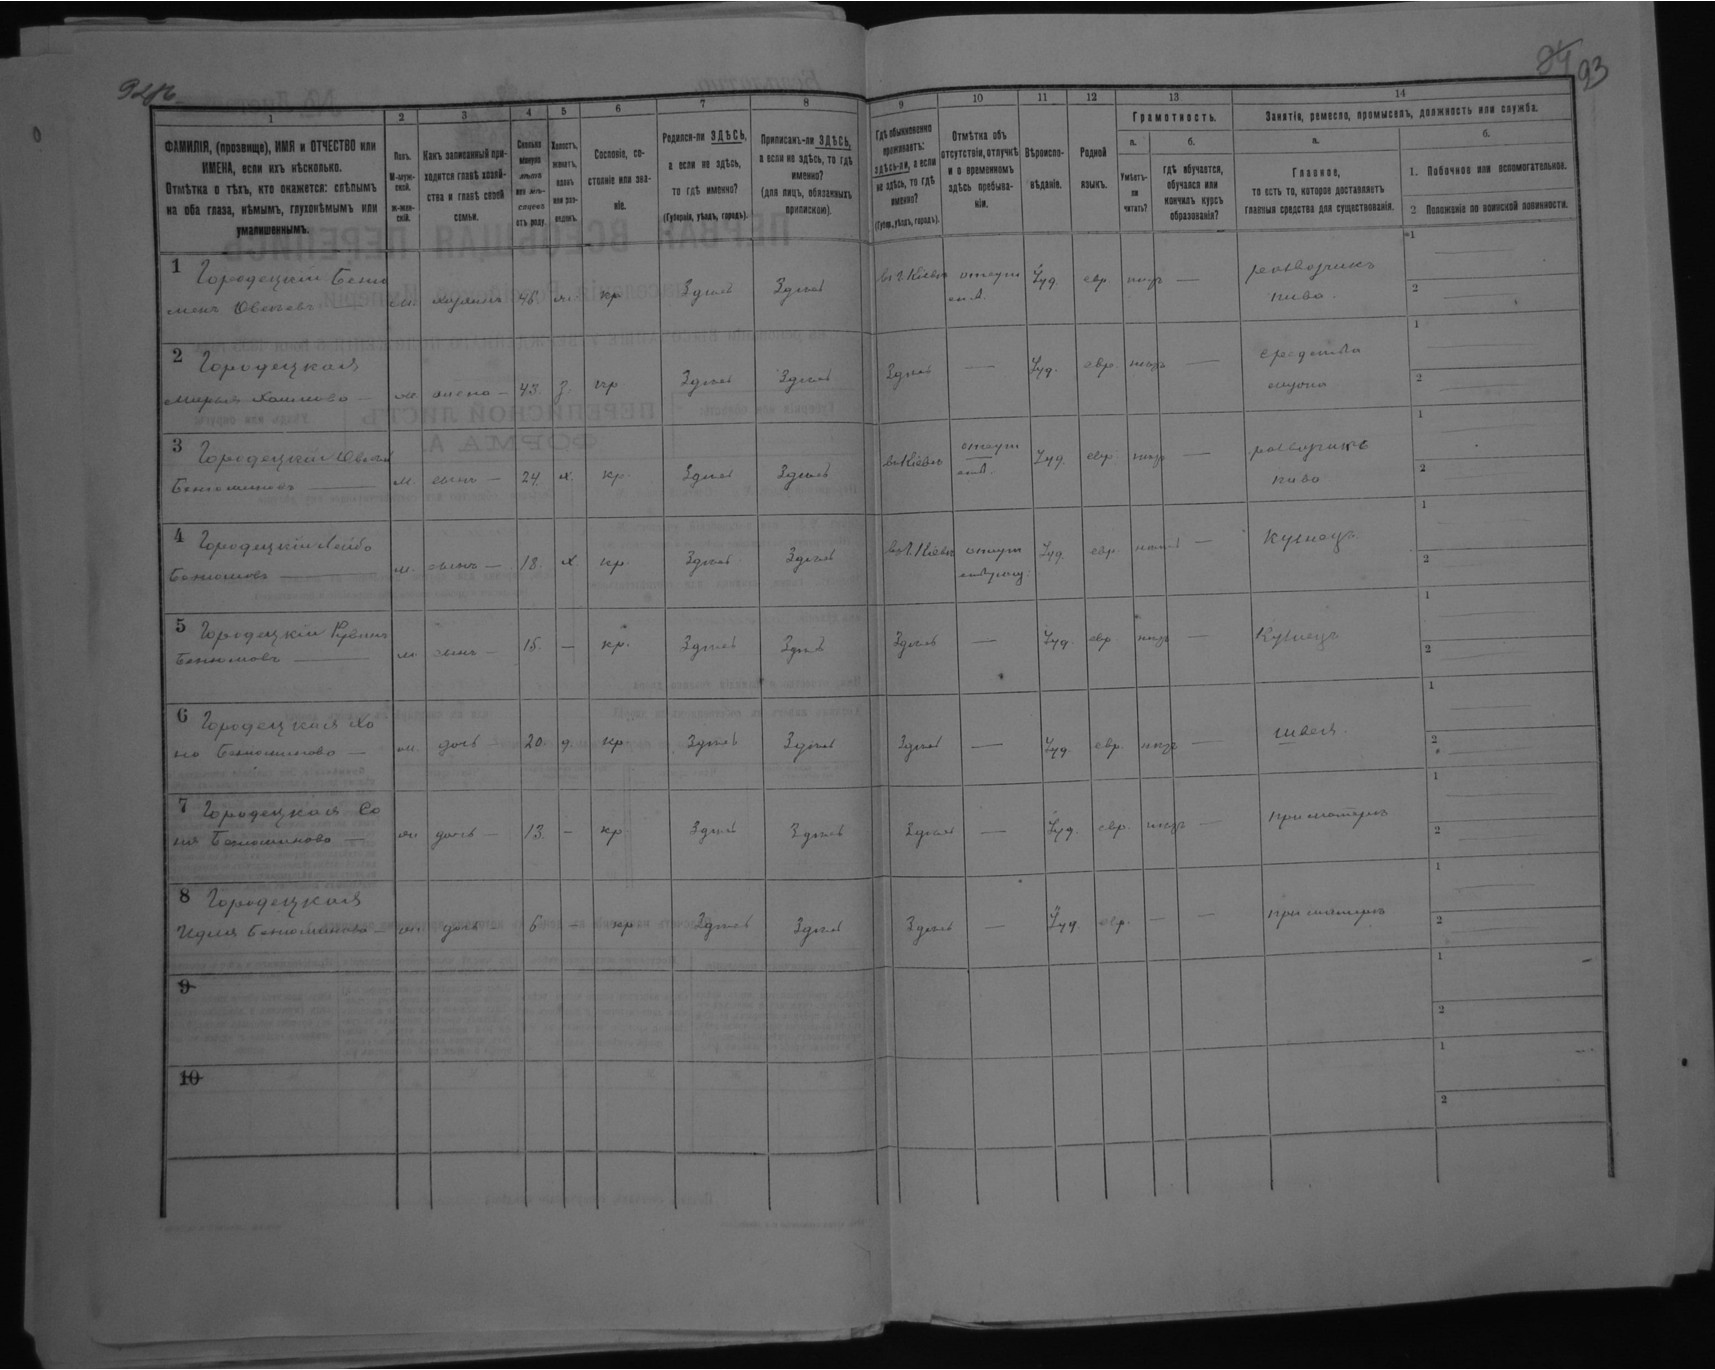 93
1
2
3
4
5
6
7
8
9
10
11
12
13
14
ФАМИЛІЯ, (прозвище), ИМЯ и ОТЧЕСТВО или
ИМЕНА, если ихъ нѣсколько.
Отмѣтка о тѣхъ, кто окажется: слѣпымъ
на оба глаза, нѣмымъ, глухонѣмымъ или
умалишеннымъ.
Полъ.
М-муж-
ской.
Ж-жен-
скій.
Какъ записанный при-
ходится главѣ хозяй-
ства и главѣ своей
семьи.
Сколько
минуло
лѣтъ
или мѣ-
сяцевъ
отъ роду.
Холостъ,
женатъ,
вдовъ
или раз-
веденъ.
Сословіе, со-
стояніе или зва-
ніе.
Родился-ли ЗДѢСЬ,
а если не здѣсь,
то гдѣ именно?
(Губернія, уѣздъ, городъ).
Приписанъ-ли ЗДѢСЬ,
а если не здѣсь, то гдѣ
именно?
(для лицъ, обязанныхъ
припискою).
Гдѣ обыкновенно
проживаетъ:
здѣсь-ли, а если
не здѣсь, то гдѣ
именно?
(Губер., уѣздъ, городъ).
Отмѣтка объ
отсутствіи, отлучкѣ
и о временномъ
здѣсь пребыва-
ніи.
Вѣроиспо-
вѣданіе.
Родной
языкъ.
Грамотность.
а.
Умѣетъ-
ли
читать?
б.
гдѣ обучается,
обучался или
кончилъ курсъ
образованія?
Занятіе, ремесло, промыселъ, должность или служба.
а.
Главное,
то есть то, которое доставляетъ
главныя средства для существованія.
б.
1. Побочное или вспомогательное.
2 Положеніе по воинской повинности.
1 Городецкій Беню
минъ м. хозяинъ 46. ж. кр. Здѣсь Здѣсь въ г. Кіевѣ отсут Іуд. евр. —
пиво.
1
2
2 Городецкая
Хаимова — ж. жена — 43. з. кр Здѣсь Здѣсь Здѣсь — Іуд. евр. — средства
мужа
1
2
3 Городецкій
Бенюминовъ — м. сынъ — 24 х. кр. Здѣсь Здѣсь въ Кіевѣ отсут Іуд. евр. —
пиво
1
2
4 Городецкій Лейба
м. сынъ — 18. х кр. Здѣсь Здѣсь въ г. Кіевѣ отсут Іуд. евр. — Кузнецъ
1
2
5 Городецкій Рувинъ
м. сынъ — 15. — кр. Здѣсь Здѣсь Здѣсь — Іуд. евр — Кузнецъ
1
2
6 Городецкая Ха
на Бенюминова — ж. дочь — 20. д. кр Здѣсь Здѣсь Здѣсь — Іуд. евр. — швея.
1
2
7 Городецкая Со
ня Бенюминова — ж. дочь — 13. — кр Здѣсь Здѣсь Здѣсь — Іуд. евр. — при матери
1
2
8 Городецкая
Бенюминова — ж. дочь — 6 — кр Здѣсь Здѣсь Здѣсь — Іуд евр. — — при матери
1
2
9
1
2
10
1
2